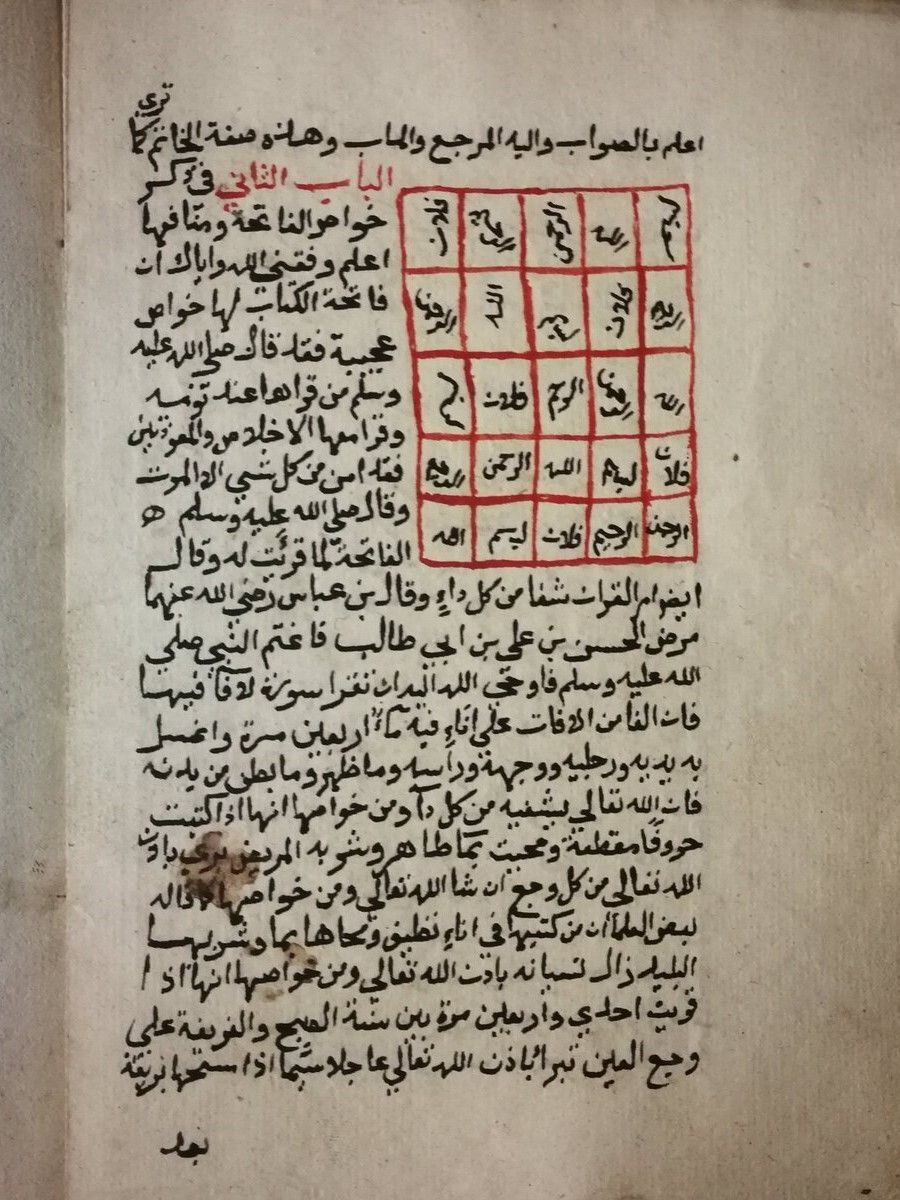 ترى
اعلم بالصواب واليه المرجع والماب وهذه صفة الخاتم كما
الباب الثاني في ذكر
خواص الفاتحة ومنافعها
اعلم وفقني الله واياك ان
فاتحة الكتاب لها خواص
عجيبة فقد قال صلي الله عليه
وسلم من قراها عند نومه
وقرا معها الاخلاص والمعوذتين
فقد امن من كل شي الا الموت
وقال صلي الله عليه وسلم
الفاتحة لما قرئت له وقال
بسم الله الرحمن الرحيم فلان
الرحيم فلان بسم الله الرحمن
الله الرحمن الرحيم فلان بسم
فلان بسم الله الرحمن الرحيم
الرحمن الرحيم فلان بسم الله
ايضا ام القران شفا من كل داء وقال بن عباس رضي الله عنهما
مرض الحسن بن علي بن ابي طالب فاغتم النبي صلي
الله عليه وسلم فاوحي الله اليه ان تقرا سورة لا فا فيها
فان الفا من الافات علي اناء فيه ماء اربعين مرة واغسل
به يديه ورجليه ووجهه وراسه وما ظهر وما بطن من بدنه
فان الله تعالي يشفيه من كل دآ ومن خواصها انها اذا كتبت
حروفا مقطعة ومحيت بما طاهر وشربه المريض بري باذن
الله تعالي من كل وجع ان شا الله تعالي ومن خواصها ما قاله
بعض العلما ان من كتبها في اناء نظيف ومحاها بما وشربها
البليد زال نسيانه باذن الله تعالي ومن خواصها انها اذا
قريت احدي واربعين مرة بين سنة الصبح والفريضة علي
وجع العين تبرا باذن الله تعالي عاجلا سيما اذا مسحها بريقة
بعد